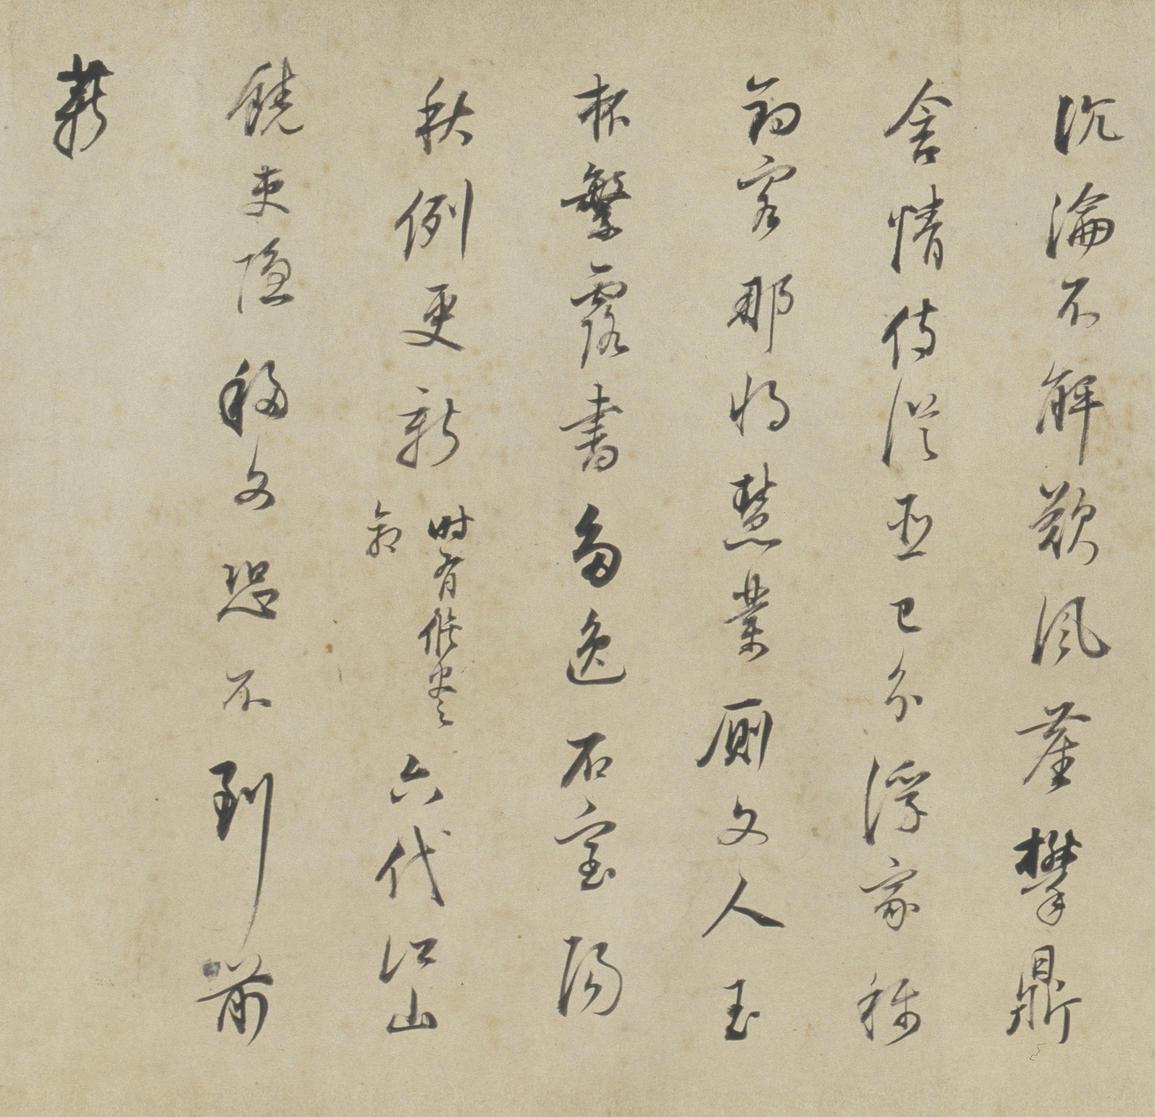 沉淪不解歎風塵攀鼎
含情侍從臣已分浮家稱
釣客那將慧業廁文人玉
杯繁露書多逸石室陽
秋例更新時有修史之命六代江山
饒吏隱移文恐不到前
薪